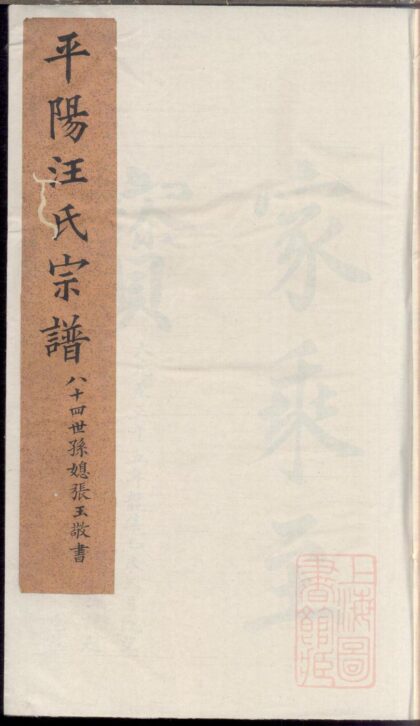 平陽汪氏宗譜
八十四世孫媳張玉敬書
家乘至
寶
上海圖
書館藏